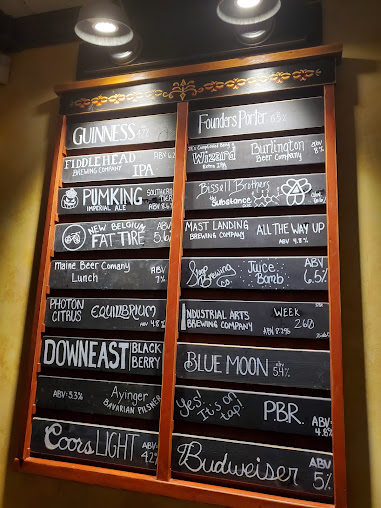 GUINNESS
FIDDLEHEAD ABV
BREWING COMPANY IPA
PUMKING SOUTHERN TIER
IMPERIAL ALE ABV 8.6%
NEW BELGIUM ABV
FAT TIRE
Maine Beer Comany ABV
Lunch 7%
PHOTON
CITRUS EQUILIBRIUM ABV 4.8%
DOWNEAST BLACK
BERRY
ABV: 3.3% Ayinger
BAVARIAN PILSNER
Coors LIGHT ABV
Founders Porter 6.5%
It's Complicated Being A
Wizard Burlington ABV
Beer Company 8%
Bissell Brothers
The Substance
MAST LANDING ALL THE WAY UP
BREWING COMPANY ABV 4.8%
Brewing Juice ABV
Co. Bomb 6.5%
INDUSTRIAL ARTS WEEK
BREWING COMPANY 260
BLUE MOON 5.4%
Yes! It's on tap! P.B.R. ABV
4.8%
Budweiser ABV
5%